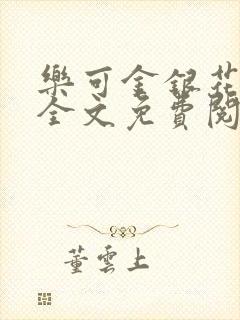 樂可金銀花
全文免費閱
董雲上